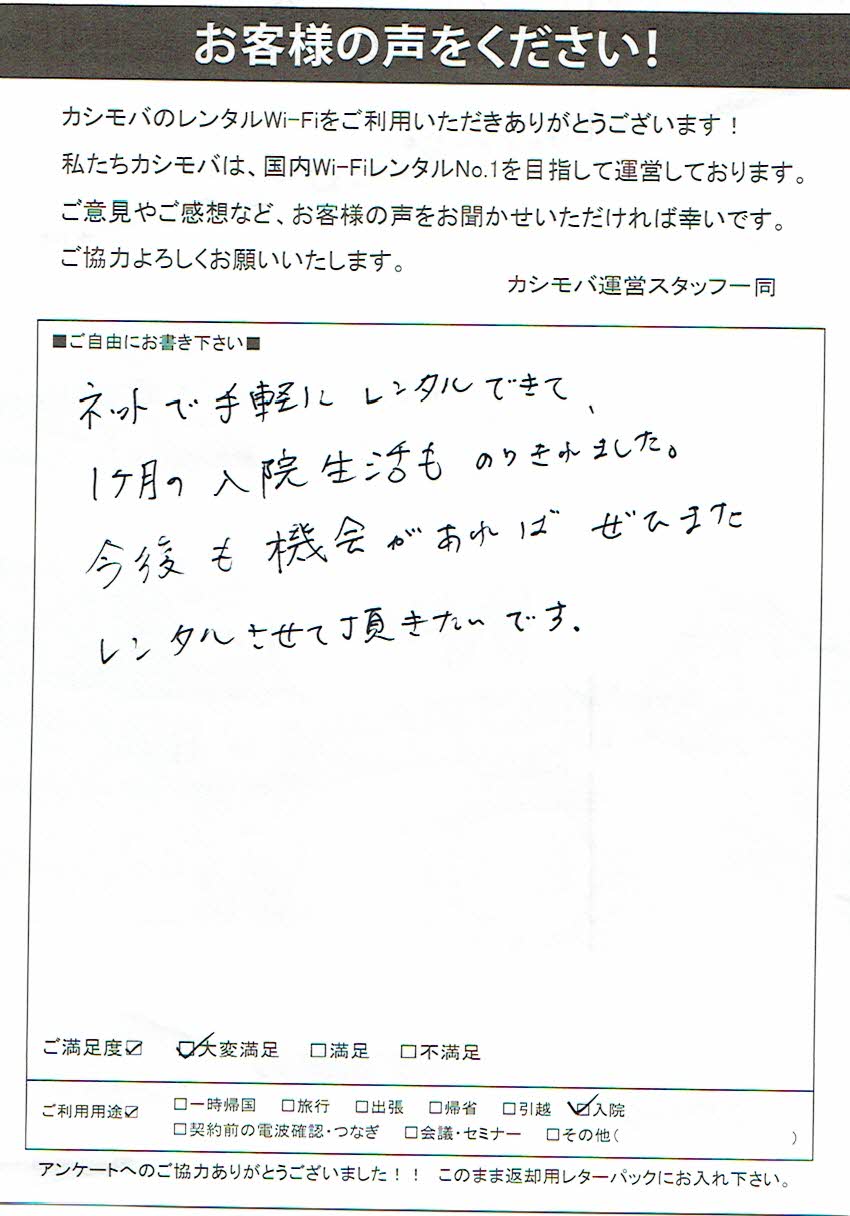 お客様の声をください!
カシモバのレンタルWi-Fiをご利用いただきありがとうございます!
私たちカシモバは、国内Wi-FiレンタルNo.1を目指して運営しております。
ご意見やご感想など、お客様の声をお聞かせいただければ幸いです。
ご協力よろしくお願いいたします。
カシモバ運営スタッフ一同
■ご自由にお書き下さい■
ネットで手軽にレンタルできて、
1ケ月の入院生活ものりきれました。
今後も機会があればぜひまた
レンタルさせて頂きたいです.
ご満足度☑ ☑大変満足 □満足 □不満足
ご利用用途☑ □一時帰国 □旅行 □出張 □帰省 □引越 ☑入院
□契約前の電波確認・つなぎ □会議・セミナー □その他( )
アンケートへのご協力ありがとうございました!! このまま返却用レターパックにお入れ下さい。